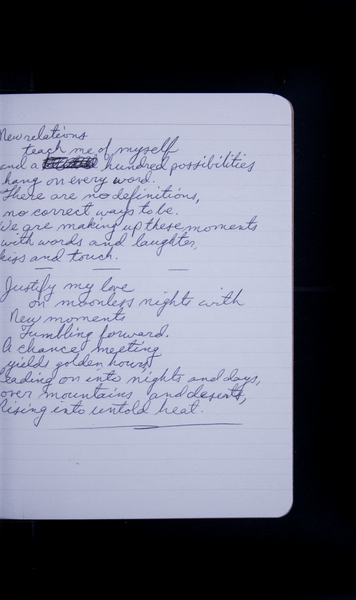 New relations
teach me of myself
and a hundred possibilities
hang on every word.
There are no definitions,
no correct ways to be.
We are making up these moments
with words and laughter,
kiss and touch.
Justify my love
on moonless nights with
New moments
Tumbling forward.
A chance meeting
yields golden hours,
leading on into nights and days,
over mountains and deserts,
Rising into untold heat.